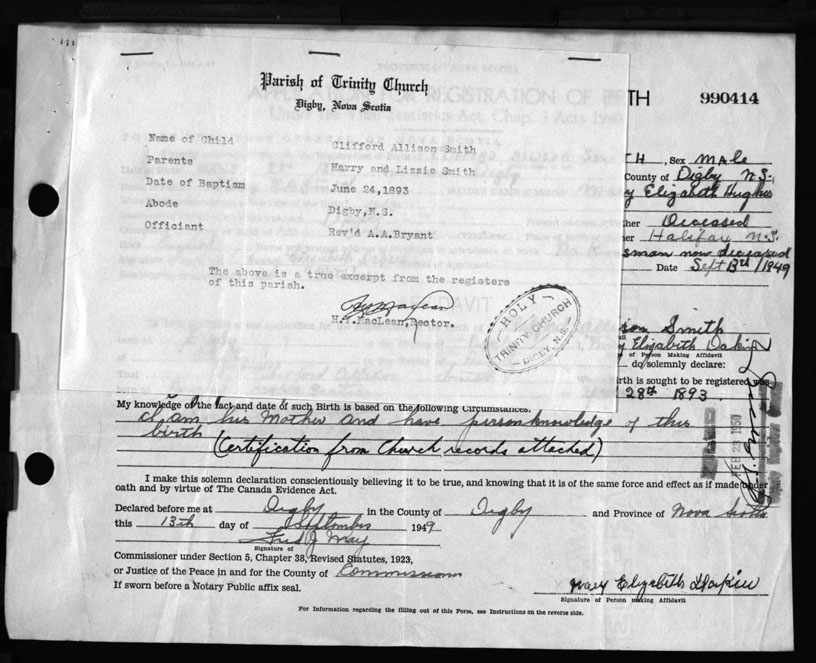 Parish of Trinity Church
Digby, Nova Scotia
TH 990414
Name of Child Clifford Allison Smith
Parents Harry and Lizzie Smith
Date of Baptism June 24,1893
Abode Digby,N.S.
Officiant Rev'd A.A.Bryant
The above is a true excerpt from the registers
of this parish.
H. MacLean,Rector.
HOLY
TRINITY CHURCH
DIGBY, N.S.
TH, Sex Male
County of Digby N.S.
y Elizabeth Hughes
her Deceased
her Halifax N.S.
sman now deceased
Date Sept 13th/1949
son Smith
y Elizabeth Dakin
of Person Making Affidavit
do solemnly declare:
irth is sought to be registered was
28th 1893.
FEB 23 1950
My knowledge of the fact and date of such Birth is based on the following Circumstances.
I am his Mother and have personknowledge of this
birth (Certification from Church records attached)
I make this solemn declaration conscientiously believing it to be true, and knowing that it is of the same force and effect as if made under
oath and by virtue of The Canada Evidence Act.
Declared before me at Digby in the County of Digby and Province of Nova Scotia
this 13th day of September 1949
Fred J May
Signature of
Commissioner under Section 5, Chapter 38, Revised Statutes, 1923,
or Justice of the Peace in and for the County of Commissioner
If sworn before a Notary Public affix seal.
Mary Elizabeth Dakin
Signature of Person making Affidavit
For Information regarding the filling out of this Form, see Instructions on the reverse side.